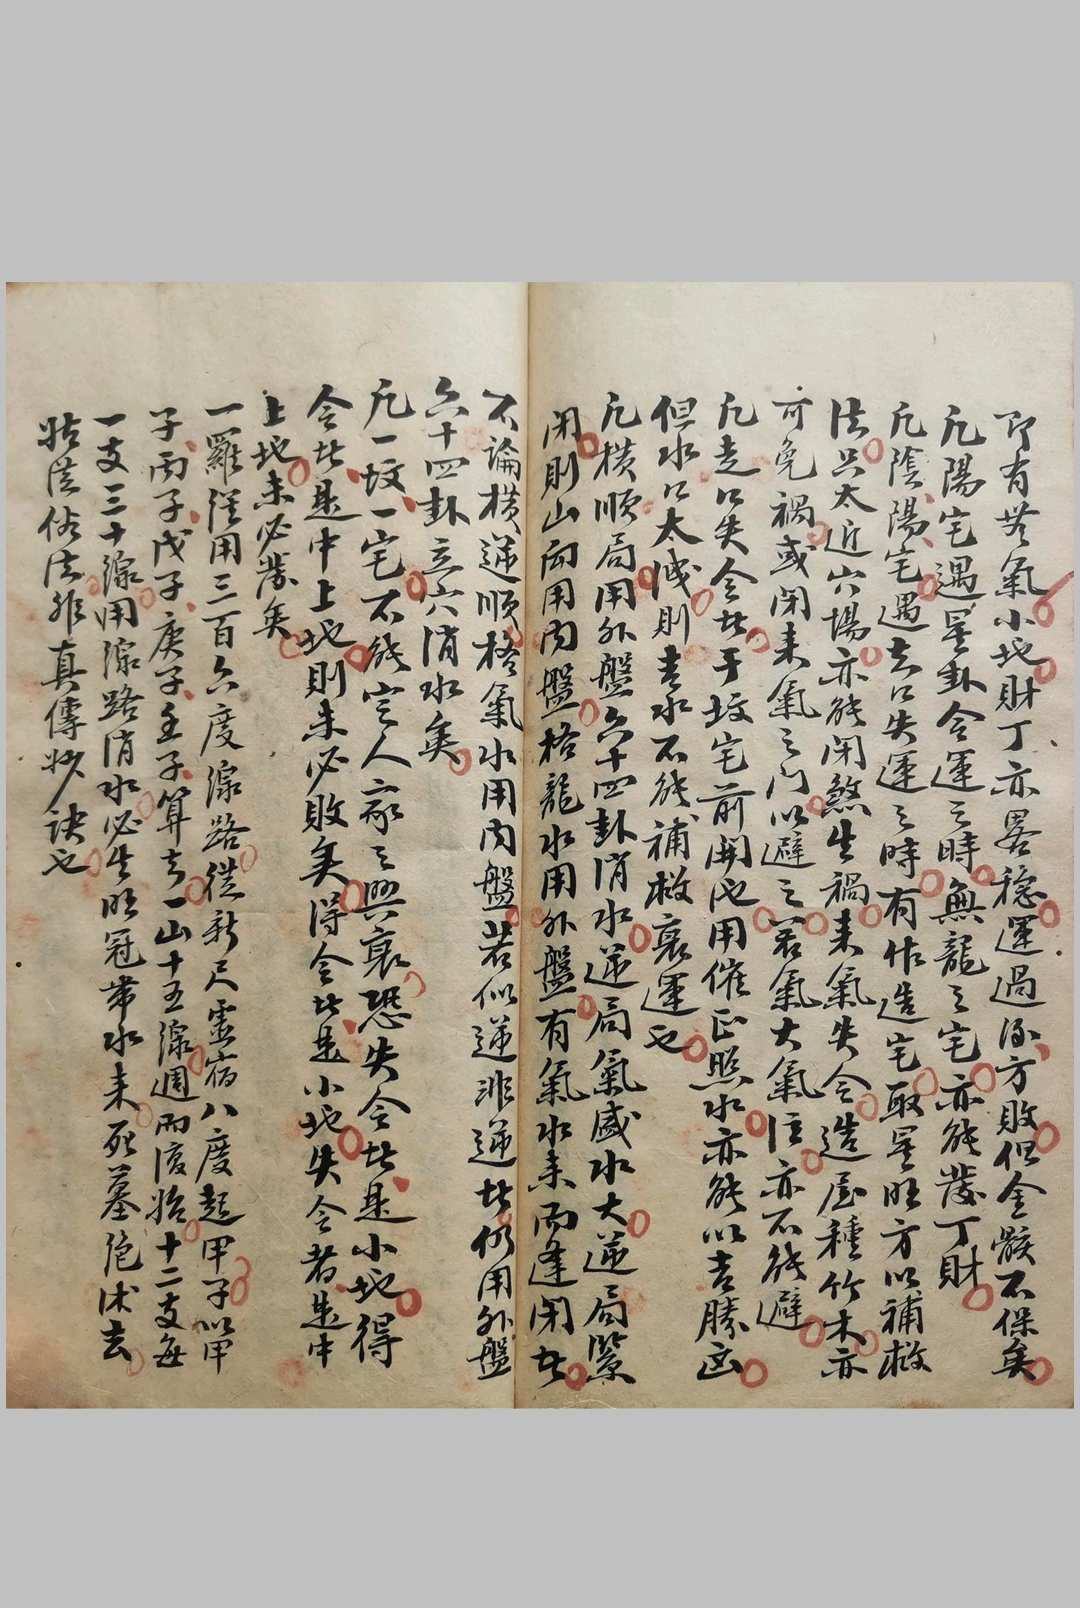 即有其氣小地財丁亦畧穩運過後方敗但全骸不保矣
凡陽宅遇星卦合運之時無龍之宅亦能發丁財
凡陰陽宅遇去口失運之時有作造宅取星旺方以補救
法只太近穴場亦能閉煞生禍来氣失令造屋種竹木亦
可免禍或閉来氣之门以避之若氣大氣亦不能避
凡去口失令者于坟宅前開池用催正照水亦能以吉勝凶
但水口太減則吉水不能補救衰運也
凡横順局用外盤六十四卦消水逆局氣盛水大逆局緊
閉則山向用内盤格龍水用外盤有氣水来而逢閉者
不論横逆順格氣水用内盤若似逆非逆者仍用外盤
六十四卦立穴消水矣
凡一坟一宅不能定人家之興衰恐失令者是小地得
令者是中上地則未必敗矣得令者是小地失令者是中
上地未必發矣
一羅經用三百六度線路從新尺虛宿八度起甲子以甲
子丙子戊子庚子壬子算去一山十五線週而復始十二支每
一支三十線用線路消水必生旺冠帶水来死墓絶水去
法俗法非真傳妙訣也